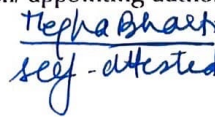 appointing autho
Megha Bhart
self-attested